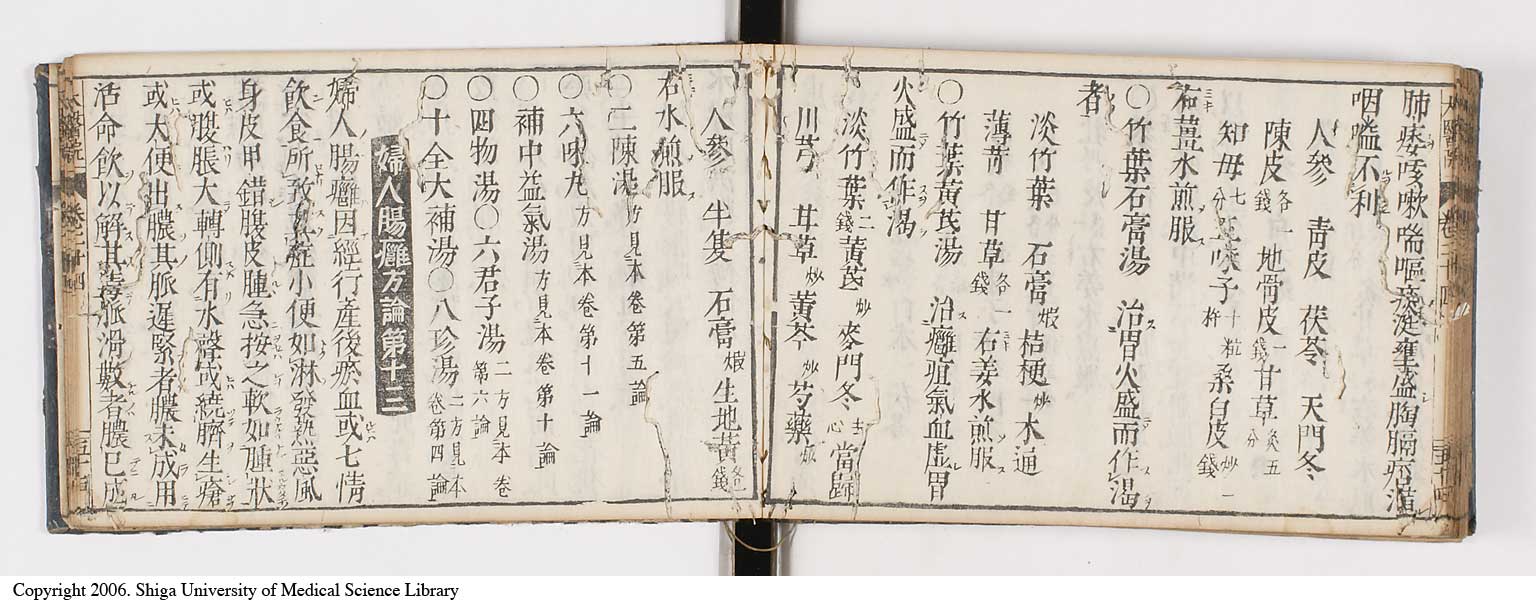 肺痿咳嗽喘嘔痰涎壅盛胸膈痞滿
咽嗌不利
人參　青皮　茯苓　天門冬
陳皮各一錢　地骨皮一錢　甘草炙五分
知母七分　五味子十粒杵　桑白皮炒一錢
右薑水煎服
〇竹葉石膏湯　治胃火盛而作渴
者
淡竹葉　石膏煅　桔梗炒　木通
薄荷　甘草各一錢　右姜水煎服
〇竹葉黃芪湯　治癰疽氣血虛胃
火盛而作渴
淡竹葉二錢　黃芪炒　麥門冬去心　當歸
川芎　甘草炒　黃芩炒　芍藥
人參　半夏　石膏煅　生地黃各一錢
右水煎服
〇二陳湯方見本卷第五論
〇六味丸方見本卷第十一論
〇補中益氣湯方見本卷第十論
〇四物湯〇六君子湯二方見本卷第六論
〇十全大補湯〇八珍湯二方見本卷第四論
婦人腸癰方論第十三
婦人腸癰因經行產後瘀血或七情
飲食所致其症小便如淋發熱惡風
身皮甲錯腹皮腫急按之軟如腫狀
或腹脹大轉側有水聲或繞臍生瘡
或大便出膿其脈遲緊者膿未成用
活命飲以解其毒脈滑數者膿已成
卷二十四
Copyright 2006. Shiga University of Medical Science Library